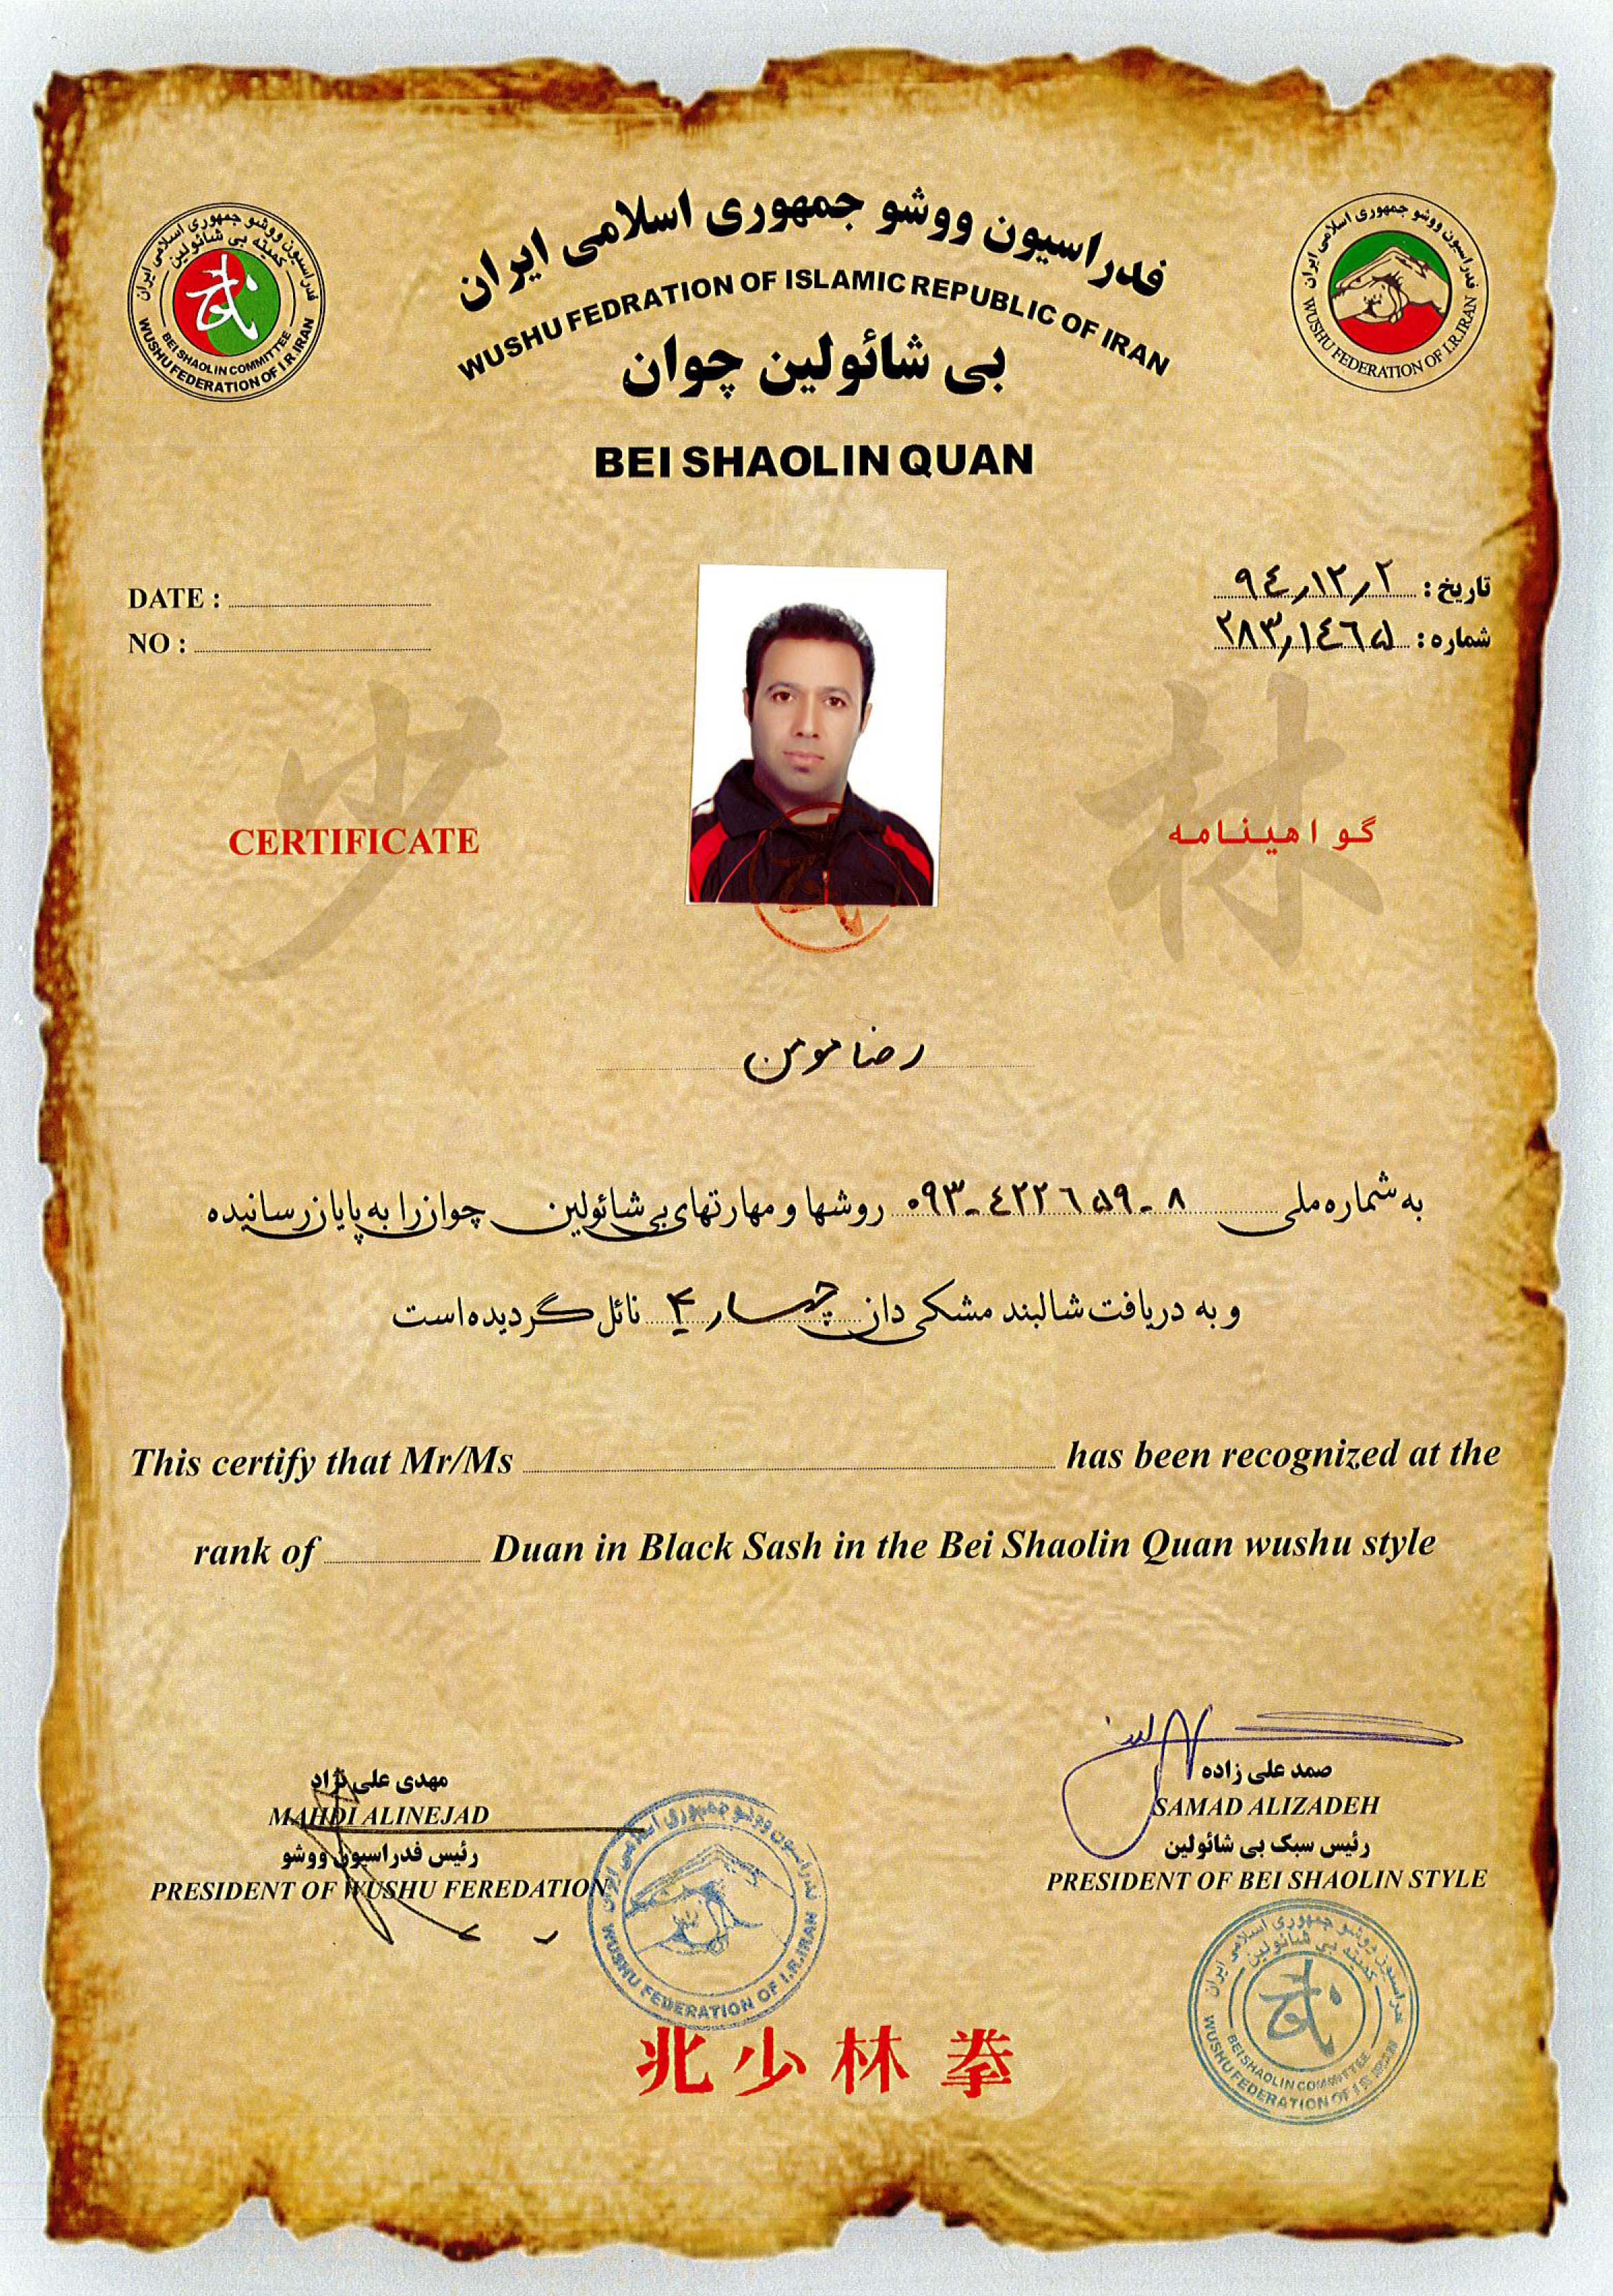 فدراسیون ووشو جمهوری اسلامی ایران
WUSHU FEDRATION OF ISLAMIC REPUBLIC OF IRAN
بی شائولین چوان
BEI SHAOLIN QUAN
فدراسیون ووشو جمهوری اسلامی ایران
کمیته بی شائولین
BEI SHAOLIN COMMITTEE
WUSHU FEDERATION OF I.R.IRAN
فدراسیون ووشو جمهوری اسلامی ایران
WUSHU FEDERATION OF I.R.IRAN
DATE :
NO :
تاریخ : ۹٤/۱۲/۲
شماره : ۲۸۳/۱٤٦۵
少 林
CERTIFICATE
گواهینامه
رضا مومن
به شماره ملی ۰۹۳-٤۲۲٦۵۹-۸ روشها و مهارتهای بی شائولین چوان را به پایان رسانیده
و به دریافت شالبند مشکی دان چهار ۴ نائل گردیده است
This certify that Mr/Ms has been recognized at the
rank of Duan in Black Sash in the Bei Shaolin Quan wushu style
مهدی علی نژاد
MAHDI ALINEJAD
رئیس فدراسیون ووشو
PRESIDENT OF WUSHU FEREDATION
صمد علی زاده
SAMAD ALIZADEH
رئیس سبک بی شائولین
PRESIDENT OF BEI SHAOLIN STYLE
فدراسیون ووشو جمهوری اسلامی ایران
WUSHU FEDERATION OF I.R.IRAN
فدراسیون ووشو جمهوری اسلامی ایران
کمیته بی شائولین
BEI SHAOLIN COMMITTEE
WUSHU FEDERATION OF I.R.IRAN
北少林拳